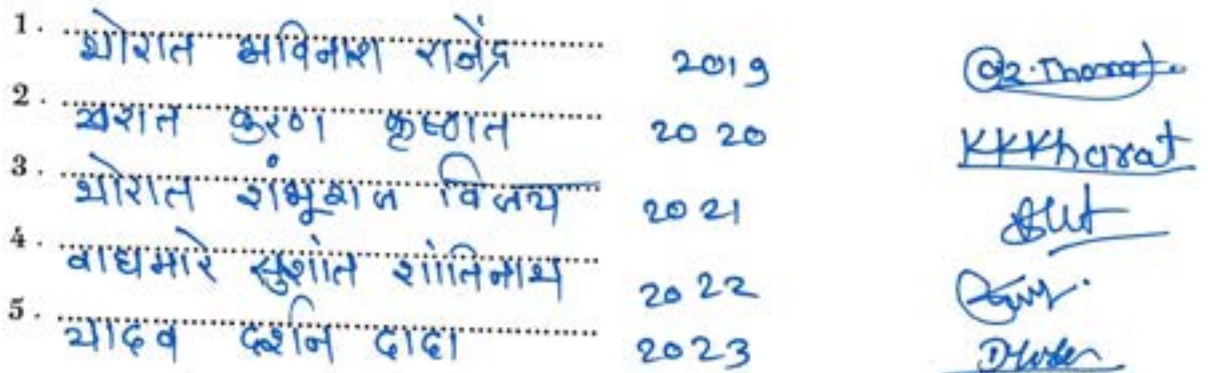 1. थोरात अविनाश राजेंद्र 2019 @R.Thorat
2. खरात करण कृष्णात 2020 KKKharat
3. थोरात शंभूराज विजय 2021
4. वाघमारे सुशांत शांतिनाथ 2022
5. यादव दर्शन दादा 2023